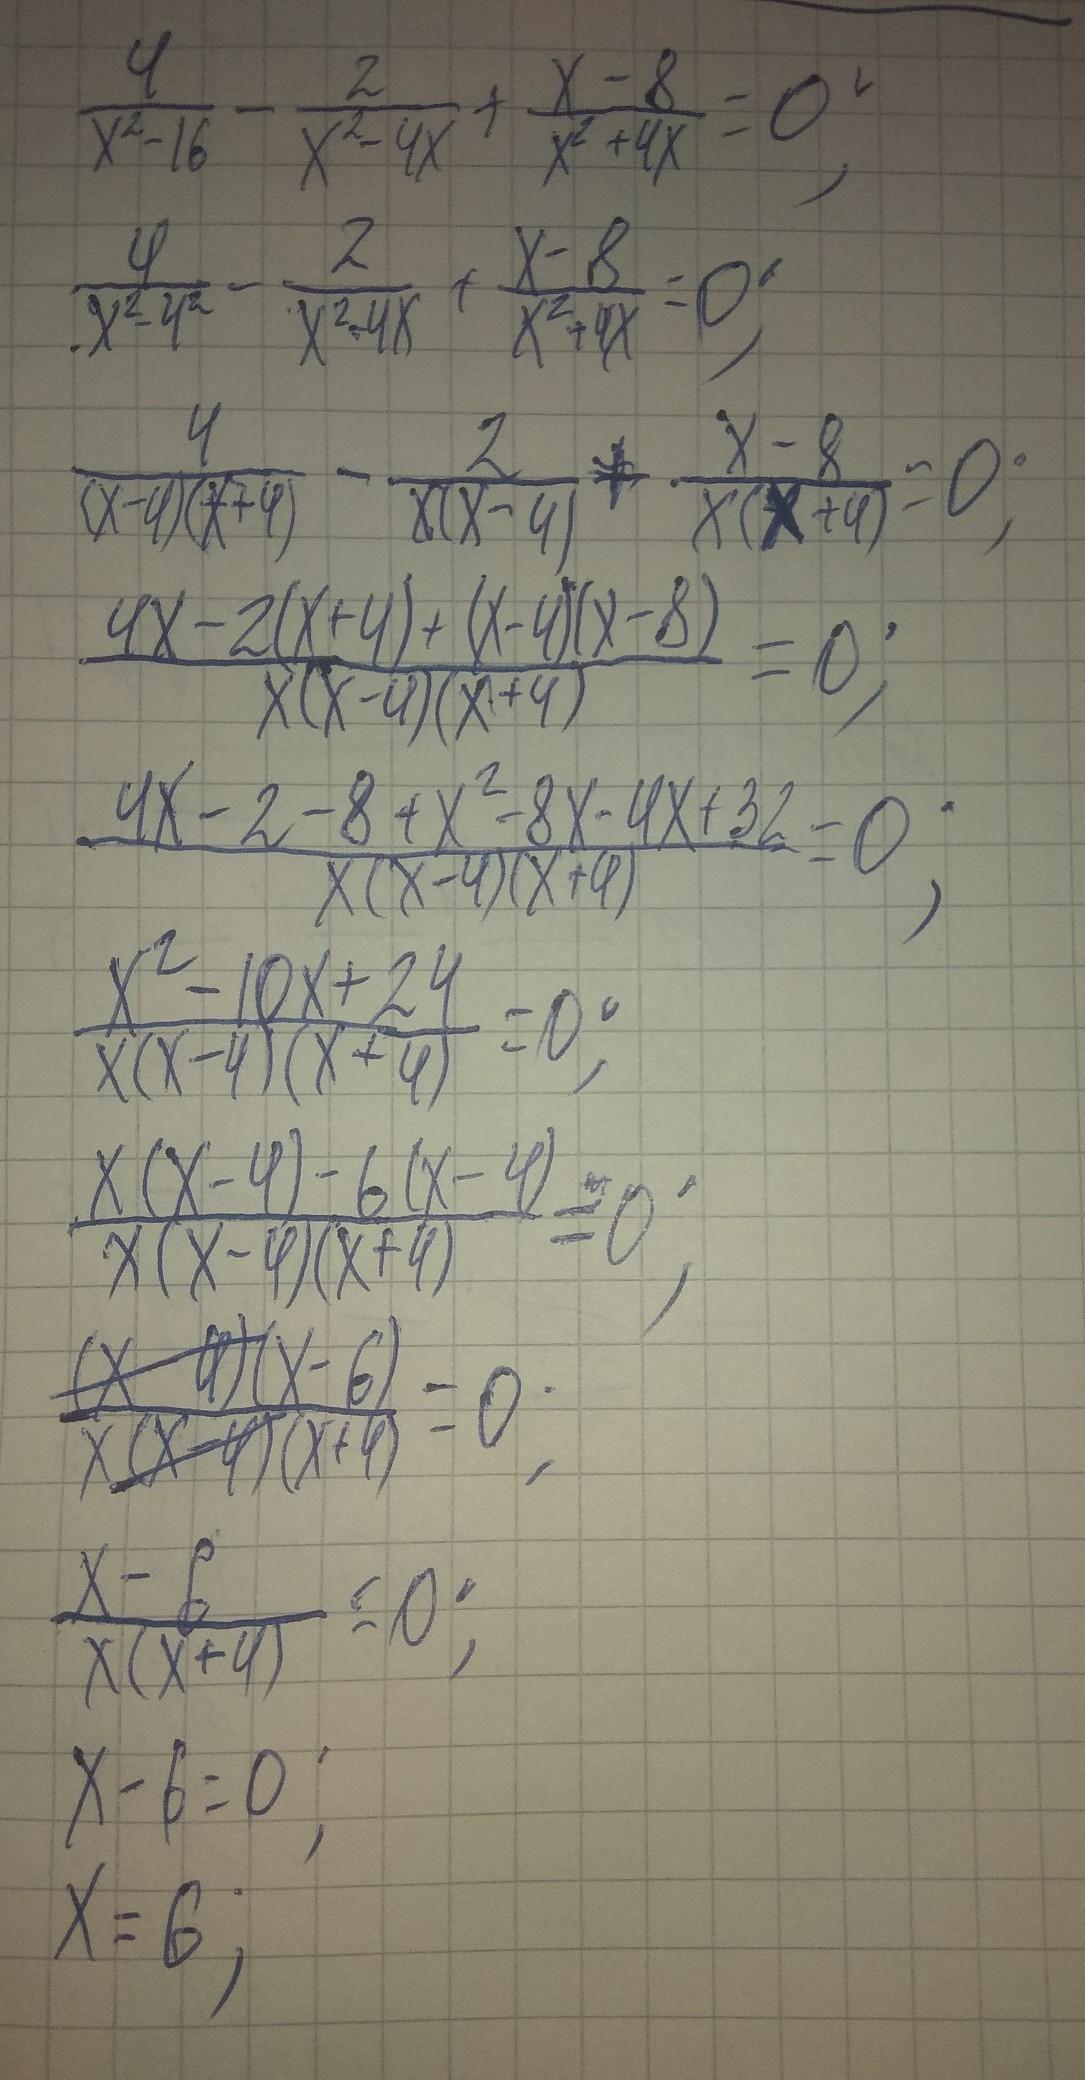 4/(x²-16) - 2/(x²-4x) + (x-8)/(x²+4x) = 0;
4/(x²-4²) - 2/(x²-4x) + (x-8)/(x²+4x) = 0;
4/((x-4)(x+4)) - 2/(x(x-4)) + (x-8)/(x(x+4)) = 0;
(4x-2(x+4)+(x-4)(x-8))/(x(x-4)(x+4)) = 0;
(4x-2-8+x²-8x-4x+32)/(x(x-4)(x+4)) = 0;
(x²-10x+24)/(x(x-4)(x+4)) = 0;
(x(x-4)-6(x-4))/(x(x-4)(x+4)) = 0;
((x-4)(x-6))/(x(x-4)(x+4)) = 0;
(x-6)/(x(x+4)) = 0;
x-6=0;
x=6;